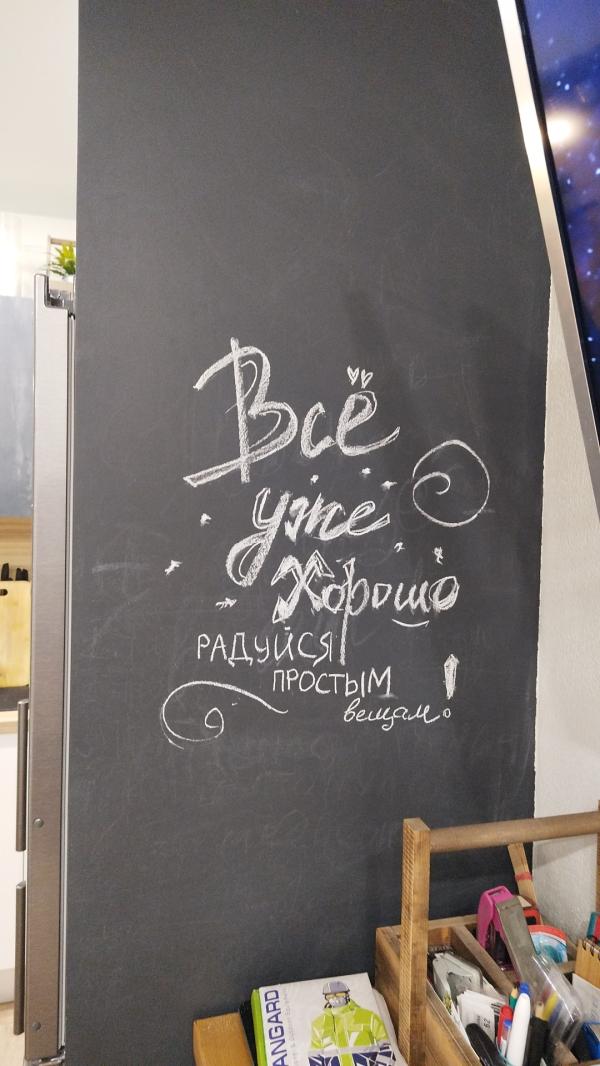 Всё
уже
хорошо
РАДУЙСЯ
ПРОСТЫМ
вещам!
ANGARD